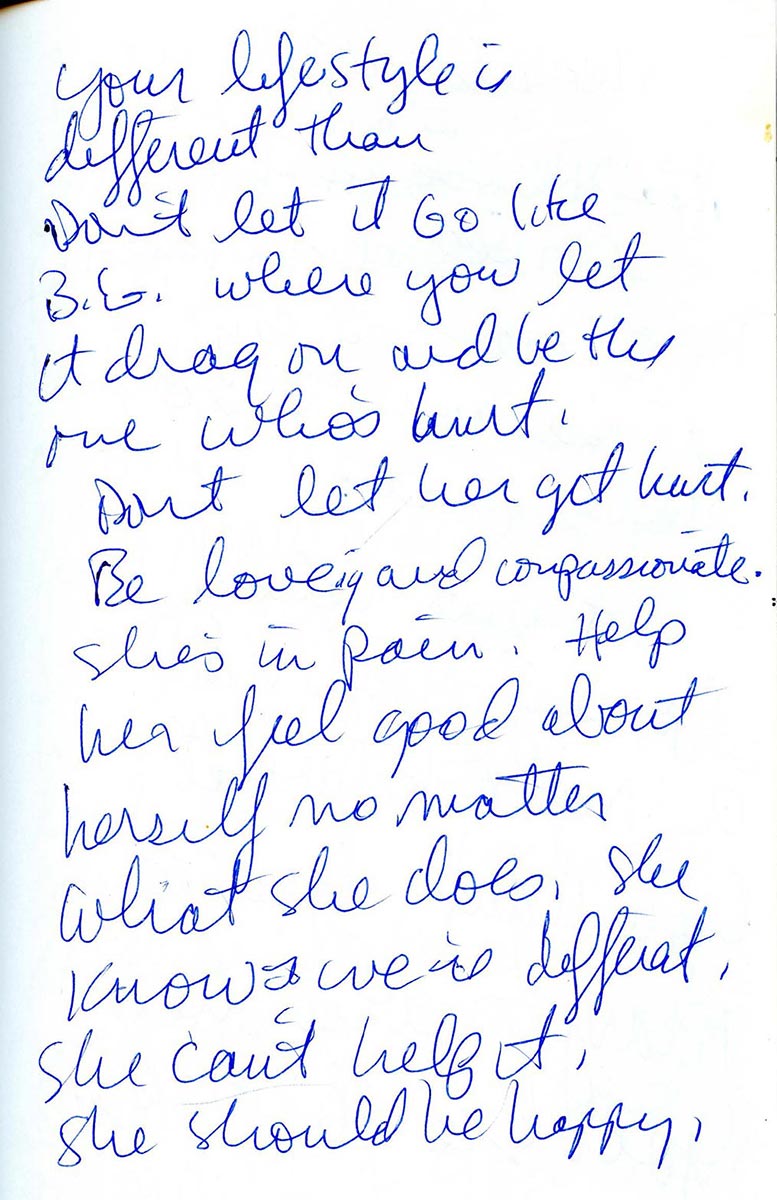 your lifestyle is
different than
Don't let it Go like
B.G. where you let
it drag on and be the
one who's hurt.
Dont let her get hurt.
Be loveig and compassionate.
she's in pain. Help
her feel good about
herself no matter
what she does. she
knows we're differat.
she can't help it.
she should be happy.